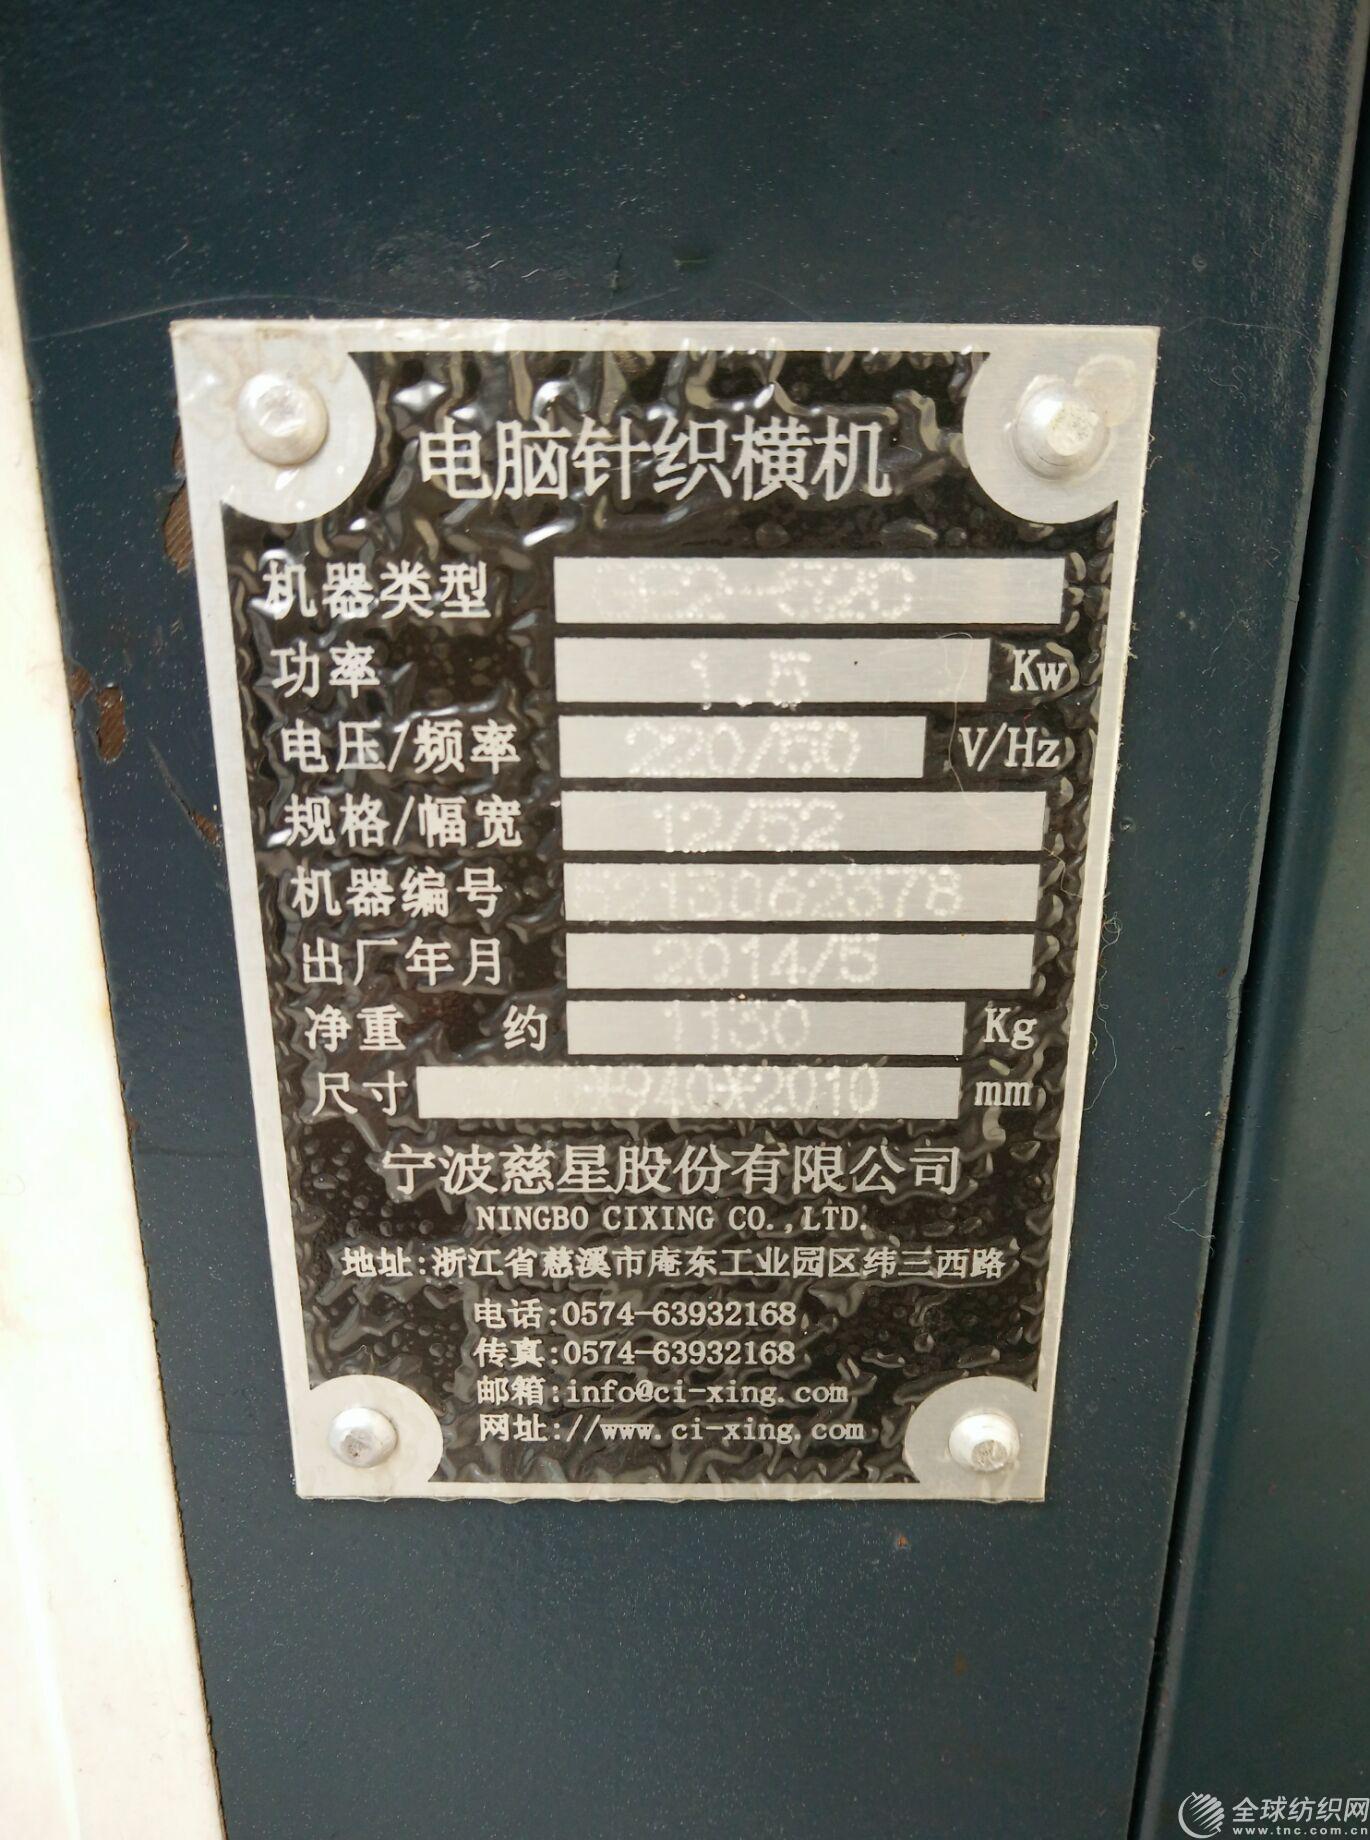 电脑针织横机
机器类型
功率 1.5 Kw
电压/频率 220/50 V/Hz
规格/幅宽 12/52
机器编号
出厂年月 2014/5
净重 约 1130 Kg
尺寸 *940*2010 mm
宁波慈星股份有限公司
NINGBO CIXING CO.,LTD.
地址:浙江省慈溪市庵东工业园区纬三西路
电话:0574-63932168
传真:0574-63932168
邮箱:info@ci-xing.com
网址://www.ci-xing.com
全球纺织网
www.tnc.com.cn